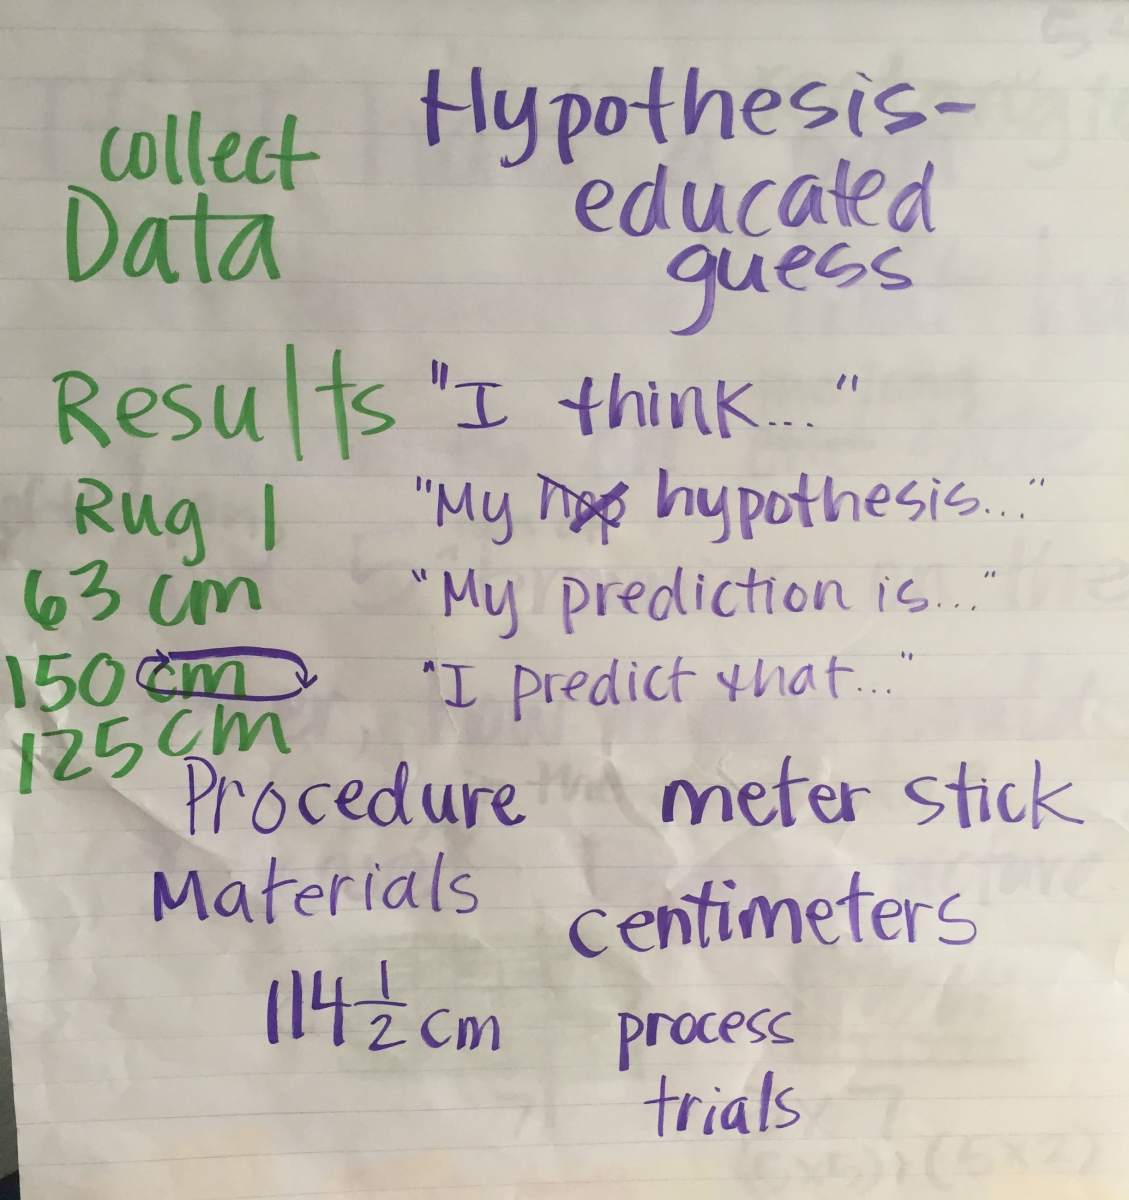 Hypothesis-
educated
guess
collect
Data
Results
Rug 1
63 cm
150 cm
125 cm
"I think..."
"My hypothesis..."
"My prediction is..."
"I predict that..."
Procedure
meter stick
Materials
centimeters
114 1/2 cm
process
trials